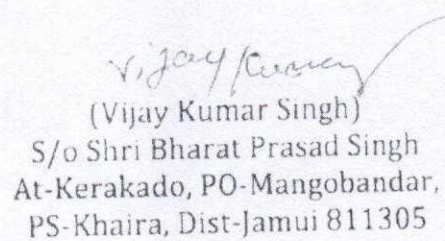 Vijay Kumar
(Vijay Kumar Singh)
S/o Shri Bharat Prasad Singh
At-Kerakado, PO-Mangobandar,
PS-Khaira, Dist-Jamui 811305